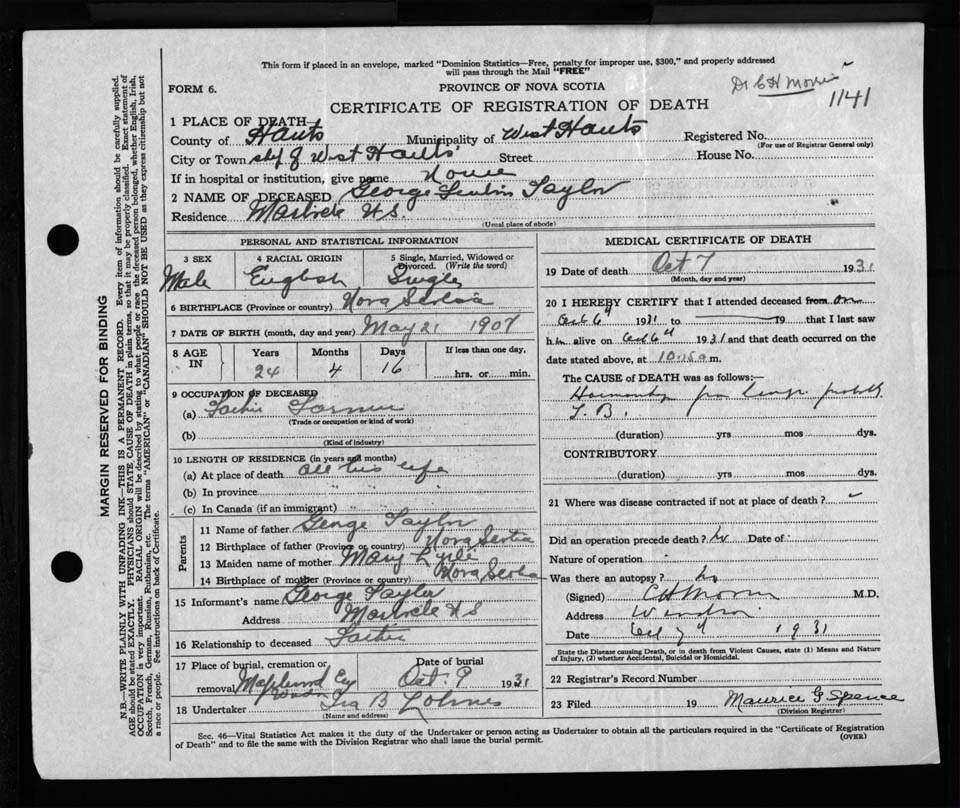 This form if placed in an envelope, marked "Dominion Statistics—Free, penalty for improper use, $300," and properly addressed
will pass through the Mail "FREE"
FORM 6.
PROVINCE OF NOVA SCOTIA
Dr C H Morris
1141
CERTIFICATE OF REGISTRATION OF DEATH
1 PLACE OF DEATH
County of Hants Municipality of West Hants Registered No.
(For use of Registrar General only)
City or Town West Hants Street House No.
If in hospital or institution, give name Home
2 NAME OF DECEASED George Taylor
Residence N.S.
(Usual place of abode)
PERSONAL AND STATISTICAL INFORMATION
3 SEX 4 RACIAL ORIGIN 5 Single, Married, Widowed or Divorced. (Write the word)
Male English Single
6 BIRTHPLACE (Province or country) Nova Scotia
7 DATE OF BIRTH (month, day and year) May 21 1907
8 AGE IN Years Months Days If less than one day,
24 4 16 hrs. or min.
9 OCCUPATION OF DECEASED
(a) Farmer
(Trade or occupation or kind of work)
(b)
(Kind of industry)
10 LENGTH OF RESIDENCE (in years and months)
(a) At place of death all his life
(b) In province " " "
(c) In Canada (if an immigrant) " " "
Parents
11 Name of father George Taylor
12 Birthplace of father (Province or country) Nova Scotia
13 Maiden name of mother Mary
14 Birthplace of mother (Province or country) Nova Scotia
15 Informant's name George Taylor
Address N S
16 Relationship to deceased Father
17 Place of burial, cremation or removal Date of burial
Oct. 9 1931
18 Undertaker Ira B
(Name and address)
MEDICAL CERTIFICATE OF DEATH
19 Date of death Oct 7 1931
(Month, day and year)
20 I HEREBY CERTIFY that I attended deceased from on
Oct 6th 1931 to 19 that I last saw
him alive on Oct 6th 1931 and that death occurred on the
date stated above, at 10.15 a m.
The CAUSE of DEATH was as follows:—
from lungs probably
T. B.
(duration) yrs mos dys.
CONTRIBUTORY
(duration) yrs mos dys.
21 Where was disease contracted if not at place of death?
Did an operation precede death? No Date of
Nature of operation
Was there an autopsy? No
(Signed) C H Morris M.D.
Address Windsor
Date Oct 7th 1931
State the Disease causing Death, or in death from Violent Causes, state (1) Means and Nature
of Injury, (2) whether Accidental, Suicidal or Homicidal.
22 Registrar's Record Number
23 Filed 19 Maurice G Spence
(Division Registrar)
Sec. 46—Vital Statistics Act makes it the duty of the Undertaker or person acting as Undertaker to obtain all the particulars required in the "Certificate of Registration
of Death" and to file the same with the Division Registrar who shall issue the burial permit.
(OVER)
MARGIN RESERVED FOR BINDING
N.B.—WRITE PLAINLY WITH UNFADING INK—THIS IS A PERMANENT RECORD. Every item of information should be carefully supplied.
AGE should be stated EXACTLY. PHYSICIANS should STATE CAUSE OF DEATH in plain terms, so that it may be properly classified. Exact statement of
OCCUPATION is very important. RACIAL ORIGIN will be described by stating to what people or race the deceased person belonged, whether English, Irish,
Scotch, French, German, Russian, Ruthenian, etc. The terms "AMERICAN" or "CANADIAN" SHOULD NOT BE USED as they express citizenship but not
a race or people. See instructions on back of Certificate.